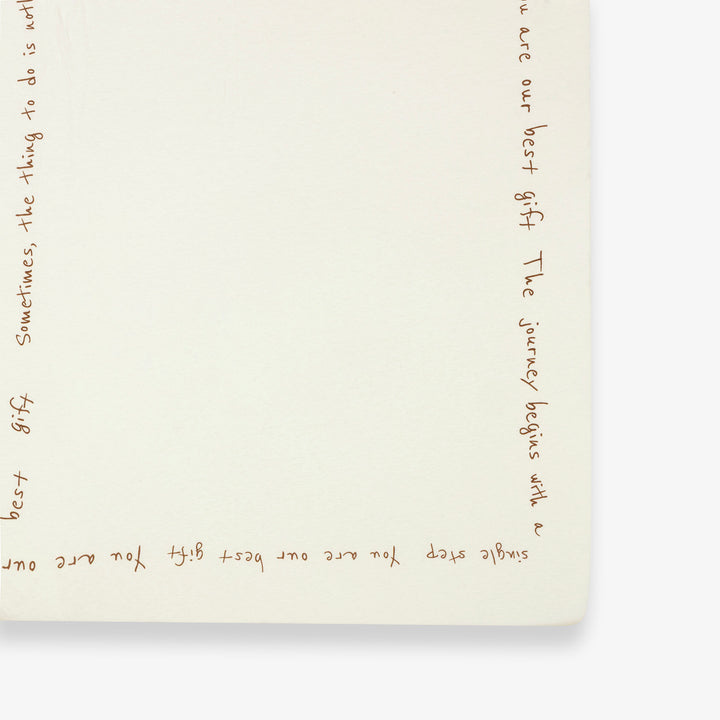 are our best gift The journey begins with a
single step You are our best gift You are our
best gift Sometimes, the thing to do is